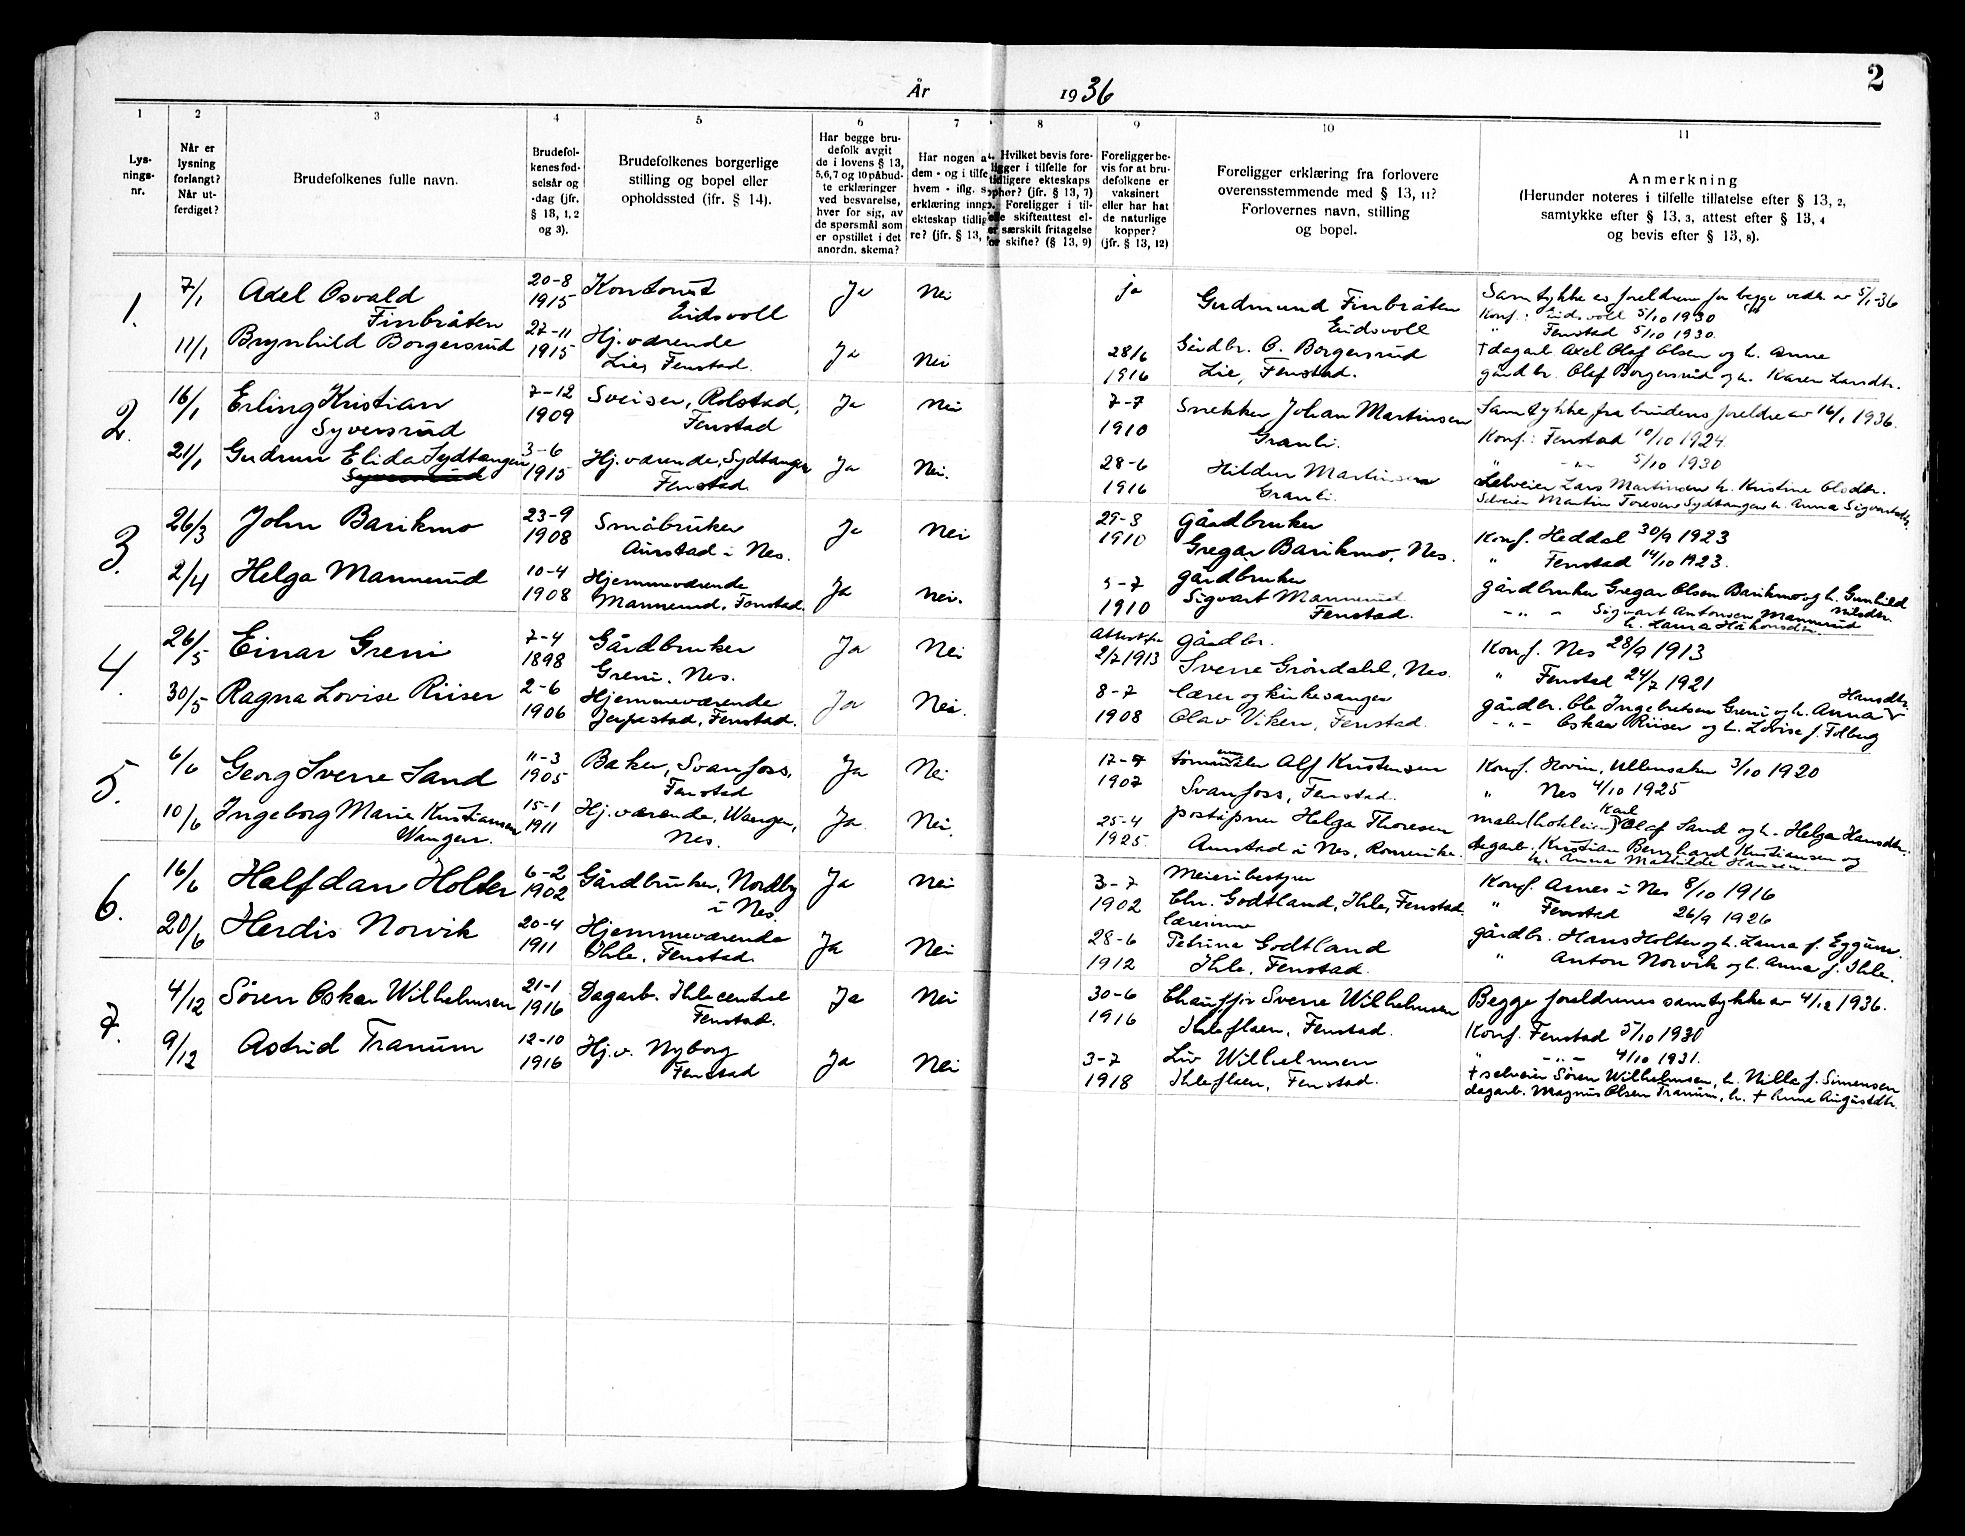 2
År 1936
1 2 3 4 5 6 7 8 9 10 11
Lys-
nings-
nr.
Når er
lysning
forlangt?
Når ut-
ferdiget?
Brudefolkenes fulle navn.
Brudefol-
kenes fød-
selsår og
-dag (jfr.
§ 13, 1, 2
og 3).
Brudefolkenes borgerlige
stilling og bopel eller
opholdssted (jfr. § 14).
Har begge bru-
defolk avgit
de i lovens § 13,
5,6,7 og 10 påbud-
te erklæringer
ved besvarelse,
hver for sig, av
de spørsmål som
er opstillet i det
anordn. skema?
Har nogen a
dem - og i tilfe
hvem - iflg. s
erklæring inng
ekteskap tidlig
re? (jfr. § 13,
Hvilket bevis fore-
ligger i tilfelle for
tidligere ekteskaps
ophør? (jfr. § 13, 7)
Foreligger i til-
felle skifteattest el-
særskilt fritagelse
for skifte? (§ 13, 9)
Foreligger be-
vis for at bru-
defolkene er
vaksinert
eller har hat
de naturlige
kopper?
(jfr. § 13, 12)
Foreligger erklæring fra forlovere
overensstemmende med § 13, 11?
Forlovernes navn, stilling
og bopel.
Anmerkning
(Herunder noteres i tilfelle tillatelse efter § 13, 2,
samtykke efter § 13, 3, attest efter § 13, 4
og bevis efter § 13, 8).
1. 7/1 Axel Osvald 20-8 Kontorist Ja Nei ja Gudmund Finbråten Samtykke av foreldrene for begge vedk. av 5/1-36
Finbråten 1915 Eidsvoll Eidsvoll Konf: Eidsvoll 5/10 1930
11/1 Brynhild Borgersrud 27-11 Hj.værende Ja Nei 28/6 Gårdbr. O. Borgersrud " Fenstad 5/10 1930.
1915 Lie, Fenstad. 1916 Lie, Fenstad. † dagarb. Axel Olaf Olsen og h. Anne
gårdbr. Olaf Borgersrud og h. Karen Larsdtr.
2. 16/1 Erling Kristian 7-12 Sveiser, Rolstad, Ja Nei 7-7 Snekker Johan Martinsen Samtykke fra brudens foreldre av 16/1 1936.
Syversrud 1909 Fenstad 1910 Granli. Konf: Fenstad 10/10 1924.
21/1 Gudrun Elida Sydtangen 3-6 Hj.værende, Sydtangen Ja Nei. 28-6 Hildur Martinsen " -"- 5/10 1930
Syversrud 1915 Fenstad. 1916 Granli. Selveier Lars Martinsen h. Kristine Olsdtr.
Selveier Martin Toresen Sydtangen h. Anna Sigvartsdtr.
3. 26/3 John Barikmo 23-9 Småbruker Ja Nei 29-3 Gårdbruker Konf. Heddal 30/9 1923
1908 Aurstad i Nes. 1910 Gregar Barikmo, Nes. " Fenstad 14/10 1923.
2/4 Helga Mannerud 10-4 Hjemmeværende Ja Nei. 5-7 gårdbruker gårdbruker Gregar Olsen Barikmo og h. Gunhild Nilsdtr.
1908 Mannerud, Fenstad. 1910 Sigvart Mannerud -"- Sigvart Antonsen Mannerud
Fenstad. h. Laura Håkonsdtr.
4. 26/5 Einar Greni 7-4 Gårdbruker Ja Nei Attest fra Gårdbr. Konf. Nes 28/9 1913
1898 Greni, Nes. 2/7 1913 Sverre Gröndahl, Nes. " Fenstad 24/7 1921
30/5 Ragna Lovise Riiser 2-6 Hjemmeværende Ja Nei. 8-7 Lærer og kirkesanger gårdbr. Ole Ingebretsen Greni og h. Anna Hansdtr.
1906 Jerpstad, Fenstad. 1908 Olav Viken, Fenstad. -"- Oskar Riiser og h. Lovise f. Folberg
5. 6/6 Georg Sverre Sand 11-3 Baker, Svanfoss, Ja Nei 17-7 Alf Kristensen Konf. Hovin, Ullensaker 3/10 1920
1905 Fenstad 1907 Svanfoss, Fenstad. " Nes 4/10 1925
10/6 Ingeborg Marie Kristiansen 15-1 Hj.værende, Wangen, Ja Nei. 25-4 poståpner Helga Thoresen maler Karl Olaf Sand og h. Helga Hansdtr.
Wangen. 1911 Nes. 1925. Aurstad i Nes, Romerike. dagarb. Kristian Bernhard Kristiansen og
h. Anna Mathilde Hansen.
6. 16/6 Halfdan Holter 6-2 Gårdbruker, Nordby Ja Nei 3-7 Meieribestyrer Konf. Årnes i Nes 8/10 1916
1902 i Nes. 1902 Chr. Godtland, Ihle, Fenstad. " Fenstad 26/9 1926
20/6 Herdis Norvik 20-4 Hjemmeværende Ja Nei 28-6 Lærerinne gårdbr. Hans Holter og h. Laura f. Eggum.
1911 Ihle, Fenstad. 1912 Petrina Godtland " Anton Norvik og h. Anna f. Ihle.
Ihle, Fenstad.
7. 4/12 Sören Oskar Wilhelmsen 21-1 Dagarb. Ihle central Ja Nei 30-6 Chauffør Sverre Wilhelmsen Begge foreldrenes samtykke av 4/12 1936.
1916 Fenstad. 1916 Ihleflaen, Fenstad. Konf. Fenstad 5/10 1930
9/12 Astrid Tranum 12-10 Hj.v. Nyborg Ja Nei 3-7 Liv Wilhelmsen " -"- 4/10 1931.
1916 Fenstad 1918 Ihleflaen, Fenstad. † selveier Sören Wilhelmsen, h. Nilla f. Simensen
dagarb. Magnus Olsen Tranum, h. † Anna Augustdtr.